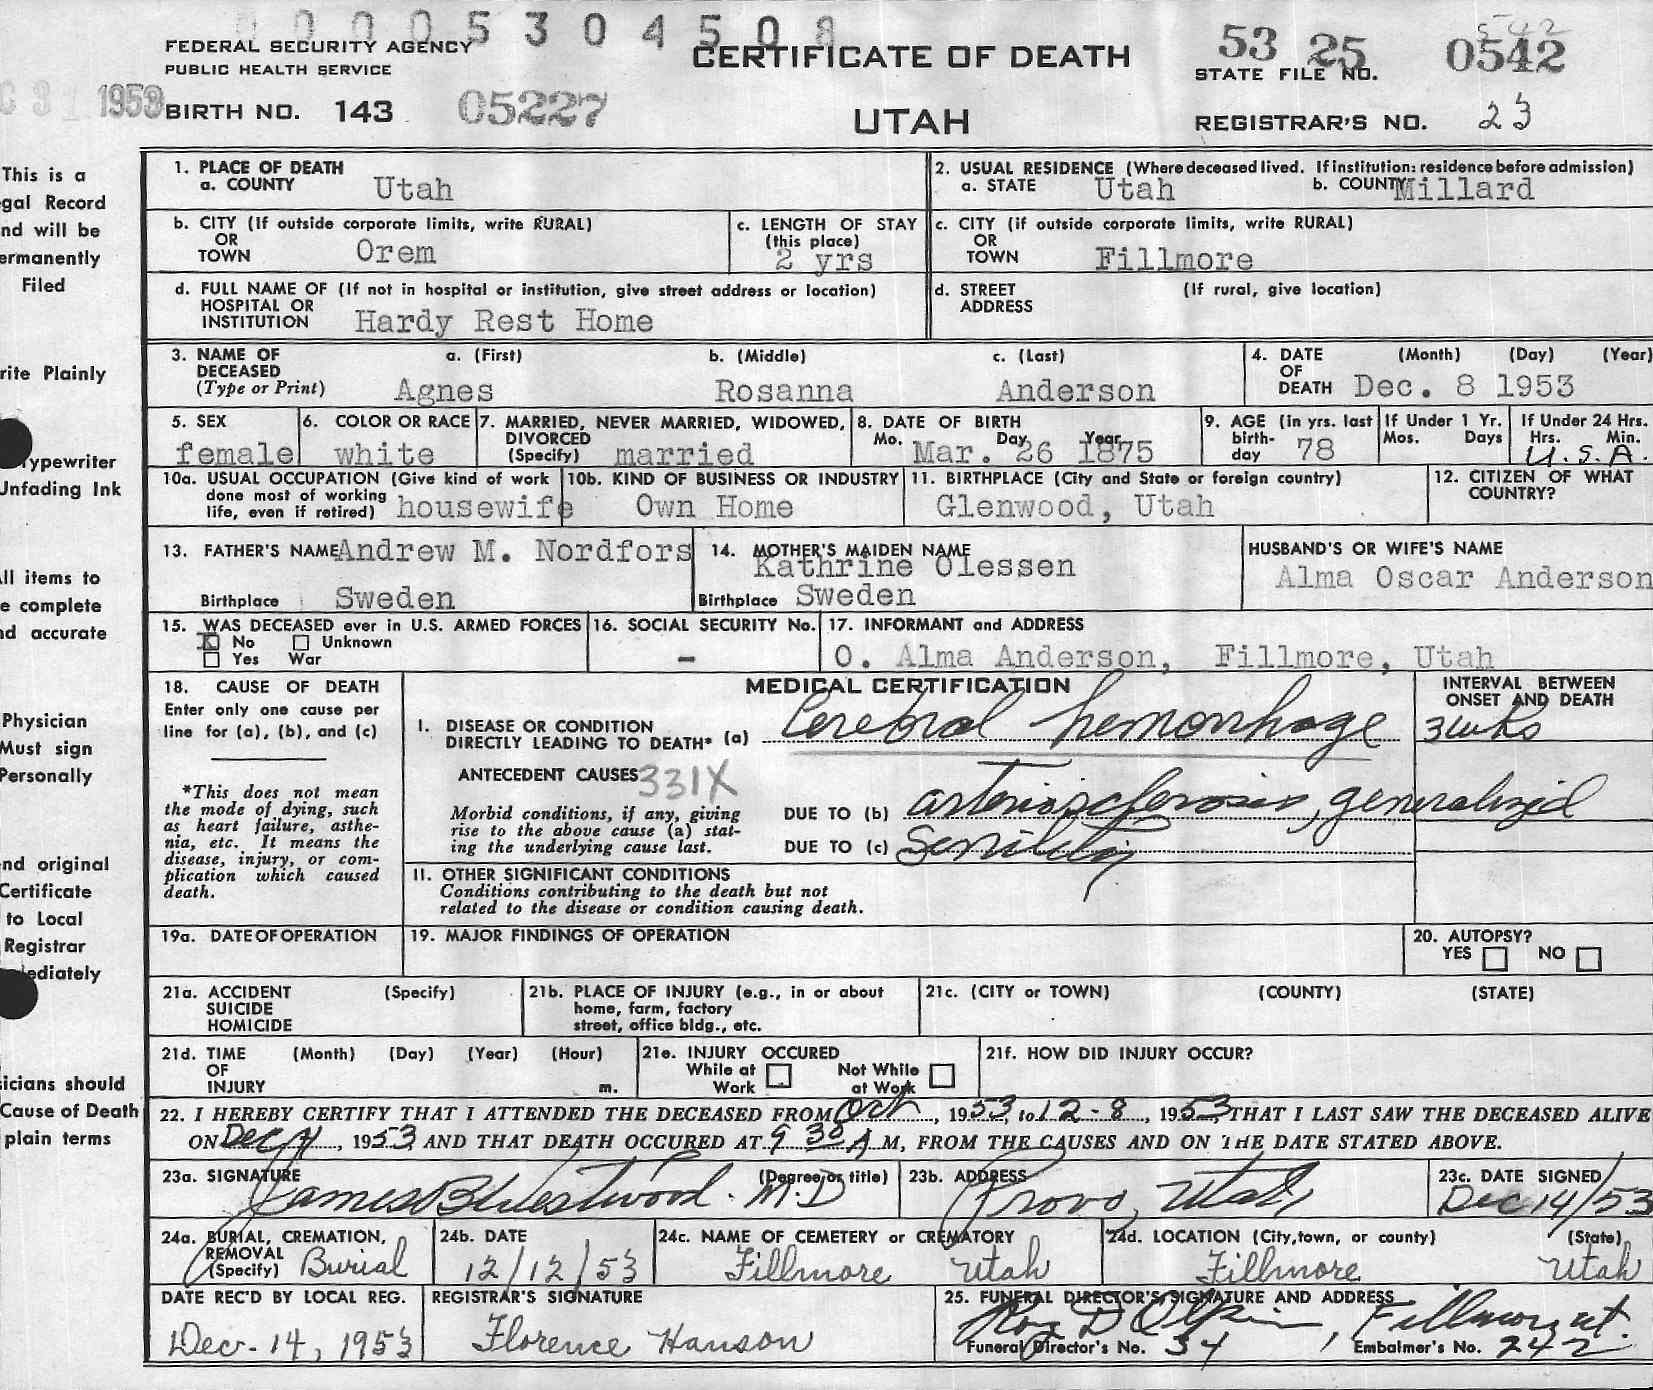 0 0 0 0 5 3 0 4 5 0 8
FEDERAL SECURITY AGENCY
PUBLIC HEALTH SERVICE
CERTIFICATE OF DEATH
UTAH
53 25 0542
542
STATE FILE NO.
C 31 1953
BIRTH NO. 143 05227
REGISTRAR'S NO. 23
This is a
gal Record
nd will be
ermanently
Filed
rite Plainly
ypewriter
Unfading Ink
ll items to
e complete
nd accurate
Physician
Must sign
Personally
nd original
Certificate
to Local
Registrar
ediately
icians should
Cause of Death
plain terms
1. PLACE OF DEATH
a. COUNTY Utah
2. USUAL RESIDENCE (Where deceased lived. If institution: residence before admission)
a. STATE Utah b. COUNTY Millard
b. CITY (If outside corporate limits, write RURAL)
OR
TOWN Orem
c. LENGTH OF STAY
(this place)
2 yrs
c. CITY (if outside corporate limits, write RURAL)
OR
TOWN Fillmore
d. FULL NAME OF (If not in hospital or institution, give street address or location)
HOSPITAL OR
INSTITUTION Hardy Rest Home
d. STREET (If rural, give location)
ADDRESS
3. NAME OF a. (First) b. (Middle) c. (Last)
DECEASED
(Type or Print) Agnes Rosanna Anderson
4. DATE (Month) (Day) (Year)
OF
DEATH Dec. 8 1953
5. SEX
female
6. COLOR OR RACE
white
7. MARRIED, NEVER MARRIED, WIDOWED,
DIVORCED
(Specify) married
8. DATE OF BIRTH
Mo. Day Year
Mar. 26 1875
9. AGE (in yrs. last
birth-
day 78
If Under 1 Yr.
Mos. Days
If Under 24 Hrs.
Hrs. Min.
U.S.A.
10a. USUAL OCCUPATION (Give kind of work
done most of working
life, even if retired) housewife
10b. KIND OF BUSINESS OR INDUSTRY
Own Home
11. BIRTHPLACE (City and State or foreign country)
Glenwood, Utah
12. CITIZEN OF WHAT
COUNTRY?
13. FATHER'S NAME Andrew M. Nordfors
Birthplace Sweden
14. MOTHER'S MAIDEN NAME
Kathrine Olessen
Birthplace Sweden
HUSBAND'S OR WIFE'S NAME
Alma Oscar Anderson
15. WAS DECEASED ever in U.S. ARMED FORCES
X No Unknown
Yes War
16. SOCIAL SECURITY No.
-
17. INFORMANT and ADDRESS
O. Alma Anderson, Fillmore, Utah
18. CAUSE OF DEATH
Enter only one cause per
line for (a), (b), and (c)
*This does not mean
the mode of dying, such
as heart failure, asthe-
nia, etc. It means the
disease, injury, or com-
plication which caused
death.
MEDICAL CERTIFICATION
INTERVAL BETWEEN
ONSET AND DEATH
I. DISEASE OR CONDITION
DIRECTLY LEADING TO DEATH* (a) Cerebral hemorrhage 3 wks
ANTECEDENT CAUSES 331X
Morbid conditions, if any, giving
rise to the above cause (a) stat-
ing the underlying cause last.
DUE TO (b) arteriosclerosis, generalized
DUE TO (c) Senility
II. OTHER SIGNIFICANT CONDITIONS
Conditions contributing to the death but not
related to the disease or condition causing death.
19a. DATE OF OPERATION
19. MAJOR FINDINGS OF OPERATION
20. AUTOPSY?
YES NO
21a. ACCIDENT (Specify)
SUICIDE
HOMICIDE
21b. PLACE OF INJURY (e.g., in or about
home, farm, factory
street, office bldg., etc.
21c. (CITY or TOWN) (COUNTY) (STATE)
21d. TIME (Month) (Day) (Year) (Hour)
OF
INJURY m.
21e. INJURY OCCURED
While at Work Not While at Work
21f. HOW DID INJURY OCCUR?
22. I HEREBY CERTIFY THAT I ATTENDED THE DECEASED FROM Oct, 1953, to 12-8, 1953, THAT I LAST SAW THE DECEASED ALIVE
ON Dec 7, 1953 AND THAT DEATH OCCURED AT 9 30 A M, FROM THE CAUSES AND ON THE DATE STATED ABOVE.
23a. SIGNATURE (Degree or title)
James B Westwood. M.D
23b. ADDRESS
Provo, Utah
23c. DATE SIGNED
Dec 14/53
24a. BURIAL, CREMATION,
REMOVAL
(Specify) Burial
24b. DATE
12/12/53
24c. NAME OF CEMETERY or CREMATORY
Fillmore Utah
24d. LOCATION (City, town, or county) (State)
Fillmore Utah
DATE REC'D BY LOCAL REG.
Dec. 14, 1953
REGISTRAR'S SIGNATURE
Florence Hanson
25. FUNERAL DIRECTOR'S SIGNATURE AND ADDRESS
Roy D Olpin, Fillmore, ut.
Funeral Director's No. 34 Embalmer's No. 242